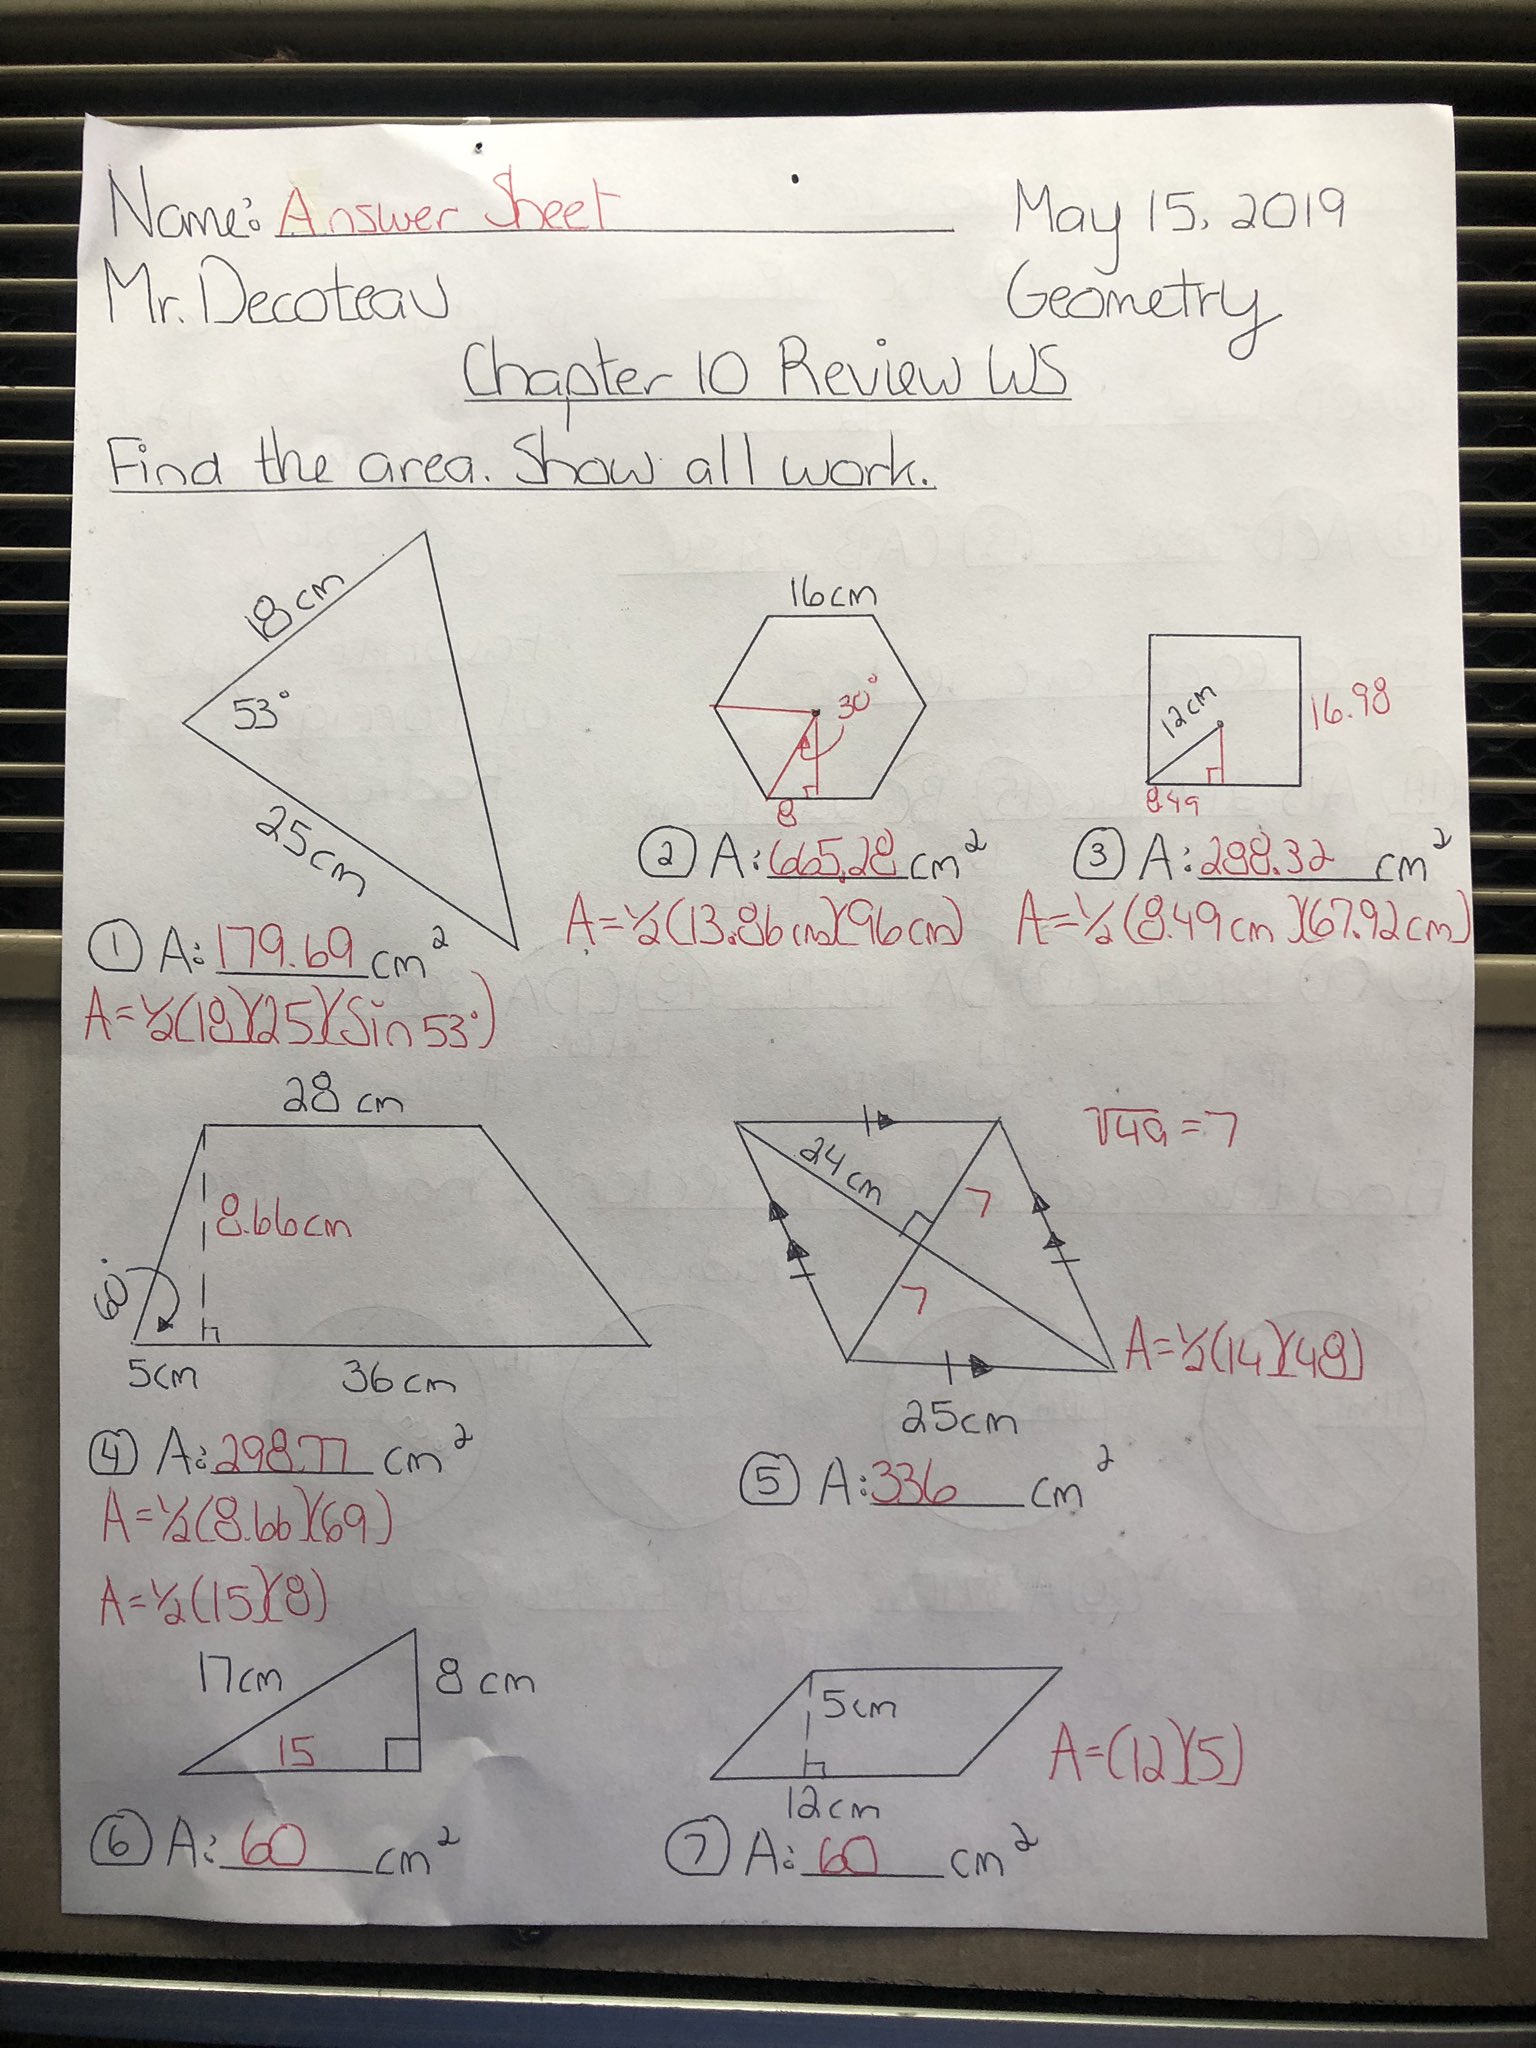 Name: Answer Sheet
May 15, 2019
Mr. Decoteau
Geometry
Chapter 10 Review WS
Find the area. Show all work.
18 cm
53°
25 cm
① A: 179.69 cm²
A=½(18)(25)(Sin 53°)
16cm
30°
8
② A: 665.28 cm²
A=½(13.86cm)(96cm)
12cm
16.98
8.49
③ A: 288.32 cm²
A=½(8.49cm)(67.92cm)
28 cm
8.66cm
60°
5cm
36cm
④ A: 298.77 cm²
A=½(8.66)(69)
24cm
7
7
√49 = 7
25cm
A=½(14)(48)
⑤ A: 336 cm²
A=½(15)(8)
17cm
8 cm
15
⑥ A: 60 cm²
5cm
12cm
A=(12)(5)
⑦ A: 60 cm²